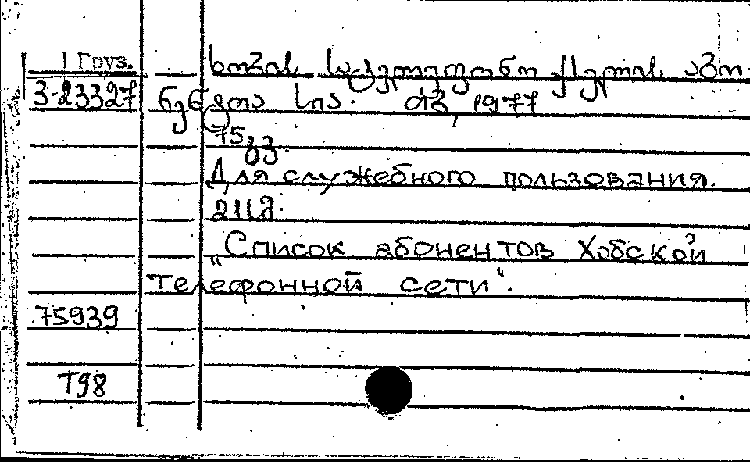 1 Груз. ხობის სატელეფონო ქსელის აბო-
3-23327 ნენტთა სია. თბ, 1977
75 გვ.
Для служебного пользования.
211შ.
"Список абонентов Хобской
телефонной сети".
75939
Т98